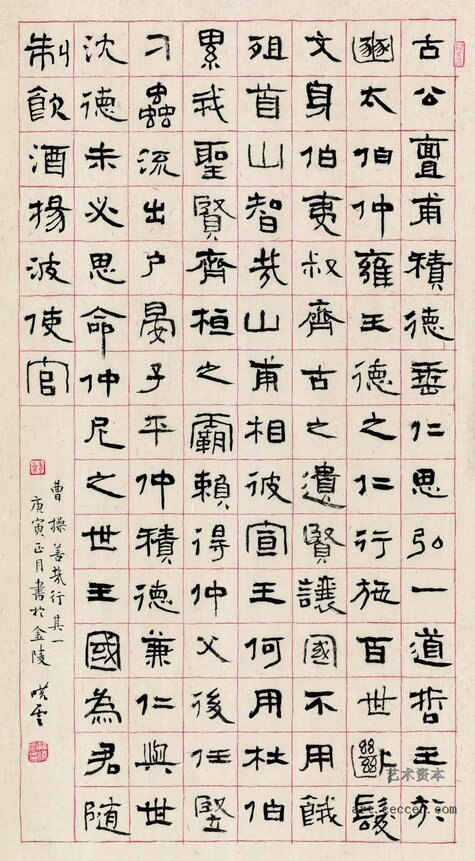 古公亶甫積德垂仁思弘一道哲王於
豳太伯仲雍王德之仁行施百世斷髮
文身伯夷叔齊古之遺賢讓國不用餓
殂首山智哉山甫相彼宣王何用杜伯
累我聖賢齊桓之霸賴得仲父後任豎
刁蟲流出户晏子平仲積德兼仁與世
沈德未必思命仲尼之世王國為君隨
制飲酒揚波使官
曹操善哉行其一
庚寅正月書於金陵 曉雲
艺术资本